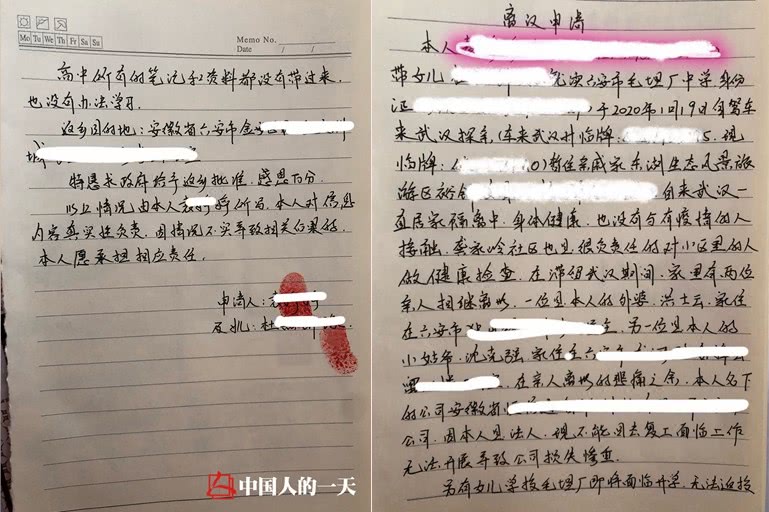 Mo Tu We Th Fr Sa Su
Memo No.
Date / /
高中所有的笔记和资料都没有带过来,
也没有办法学习.
返乡目的地:安徽省六安市金
城
特恳求政府给予返乡批准.感恩万分.
以上情况由本人 所写.本人对信息
内容真实性负责.因情况不实导致相关后果的.
本人愿承担相应责任.
申请人:
女儿:杜
中国人的一天
离汉申请
本人
带女儿 就读六安市毛坦厂中学.身份
证 于2020年1月19日自驾车
来武汉探亲,(车来武汉时临牌: 5.现
临牌: 0)暂住亲戚家东湖生态风景旅
游区 自来武汉一
直居家隔离中.身体健康.也没有与有疫情的人
接触.龚家岭社区也是很负责任的对小区里的人
做健康检查.在滞留武汉期间.家里有两位
亲人相继离世.一位是本人的外婆.洪士云.家住
在六安市 另一位是本人的
小姑爷.沈克强.家住在六安市
在亲人离世的悲痛之余.本人名下
的公司安徽省
公司.因本人是法人.现不能回去复工面临工作
无法开展导致公司损失惨重.
另有女儿学校毛坦厂即将面临开学.无法返校